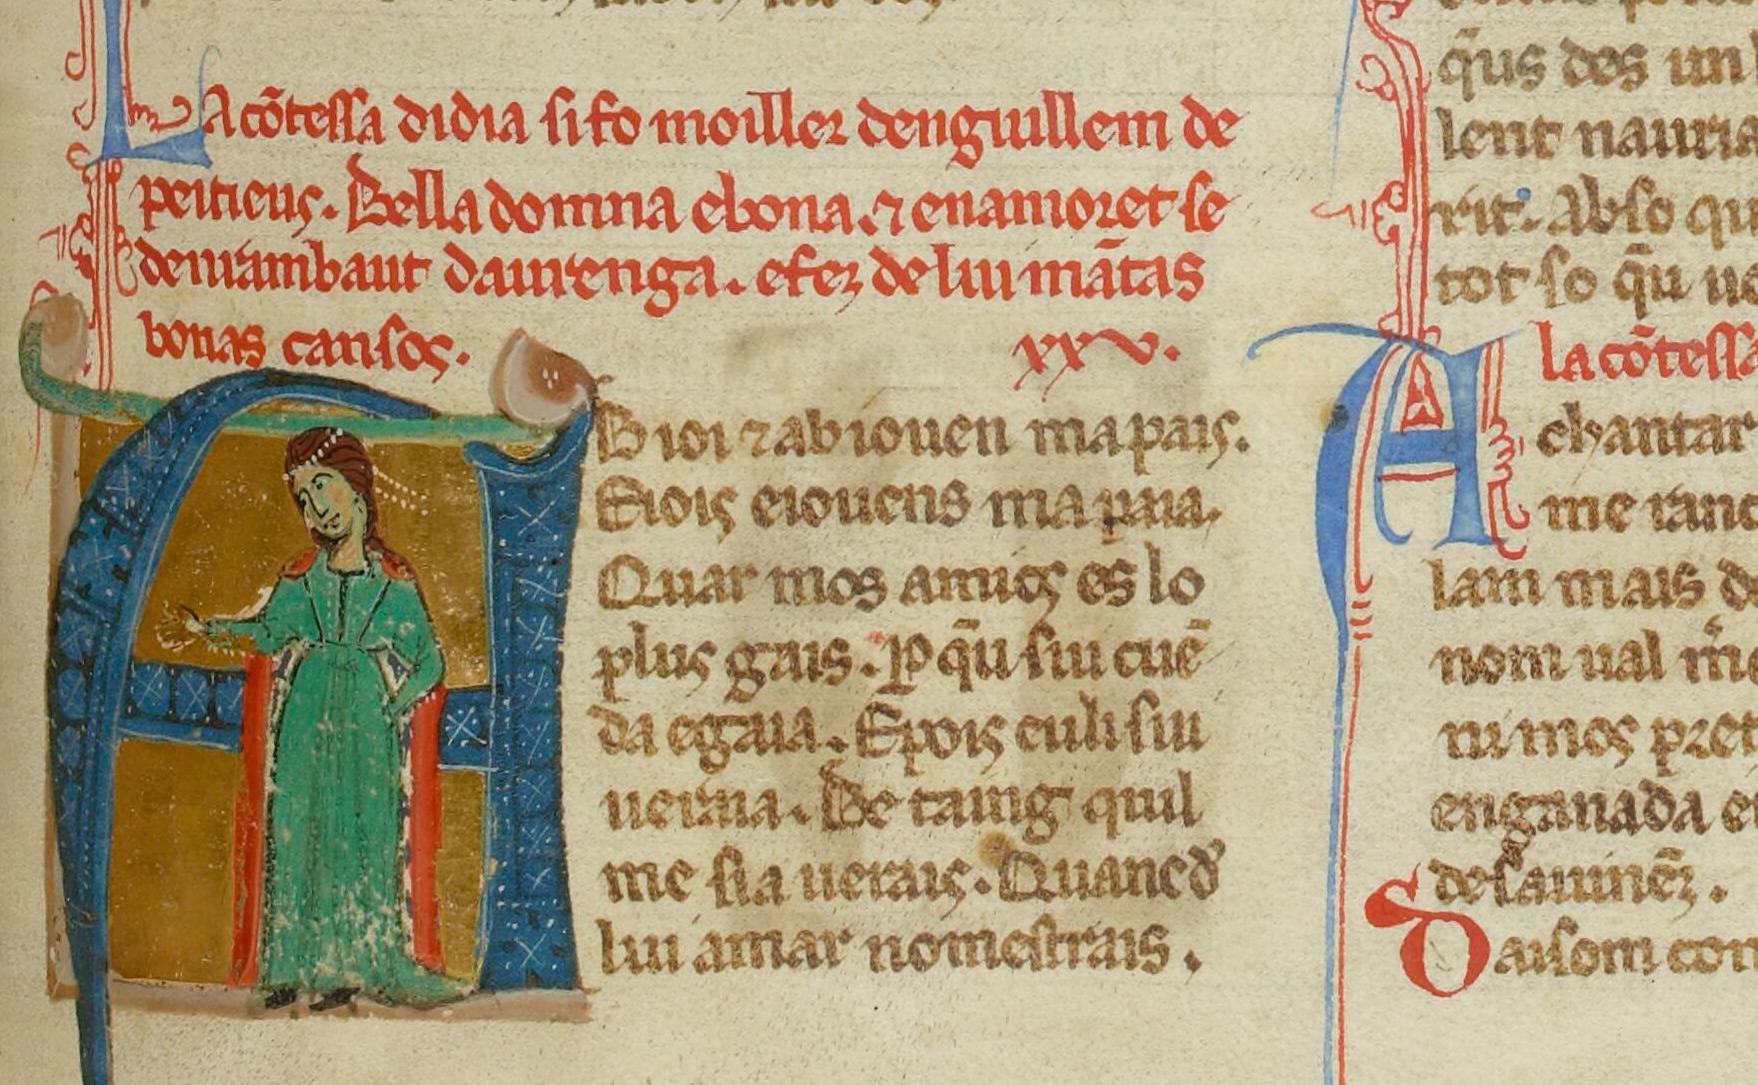 La cõtessa didia si fo moiller denguillem de
peitieus. Bella domna ebona. ⁊ enamoret se
denrambaut daurenga. efez de lui mãtas
bonas cansos. xxv.
AB ioi ⁊ ab iouen ma pais.
E iois e iouens ma paia.
Quar mos amics es lo
plus gais. P q̃u sui cuẽ
da e gaia. E pois eu li sui
ueraia. Be taing quil
me sia uerais. Quanc d̃
lui amar no mestrais.
q̃us des un
lent nauria
rit. Abso qu
tot so q̃u ue
la cõtessa
A chantar
me
lam mais d
nom ual m̃
ni mos pret
enganada e
desauinẽz.
Daisom con